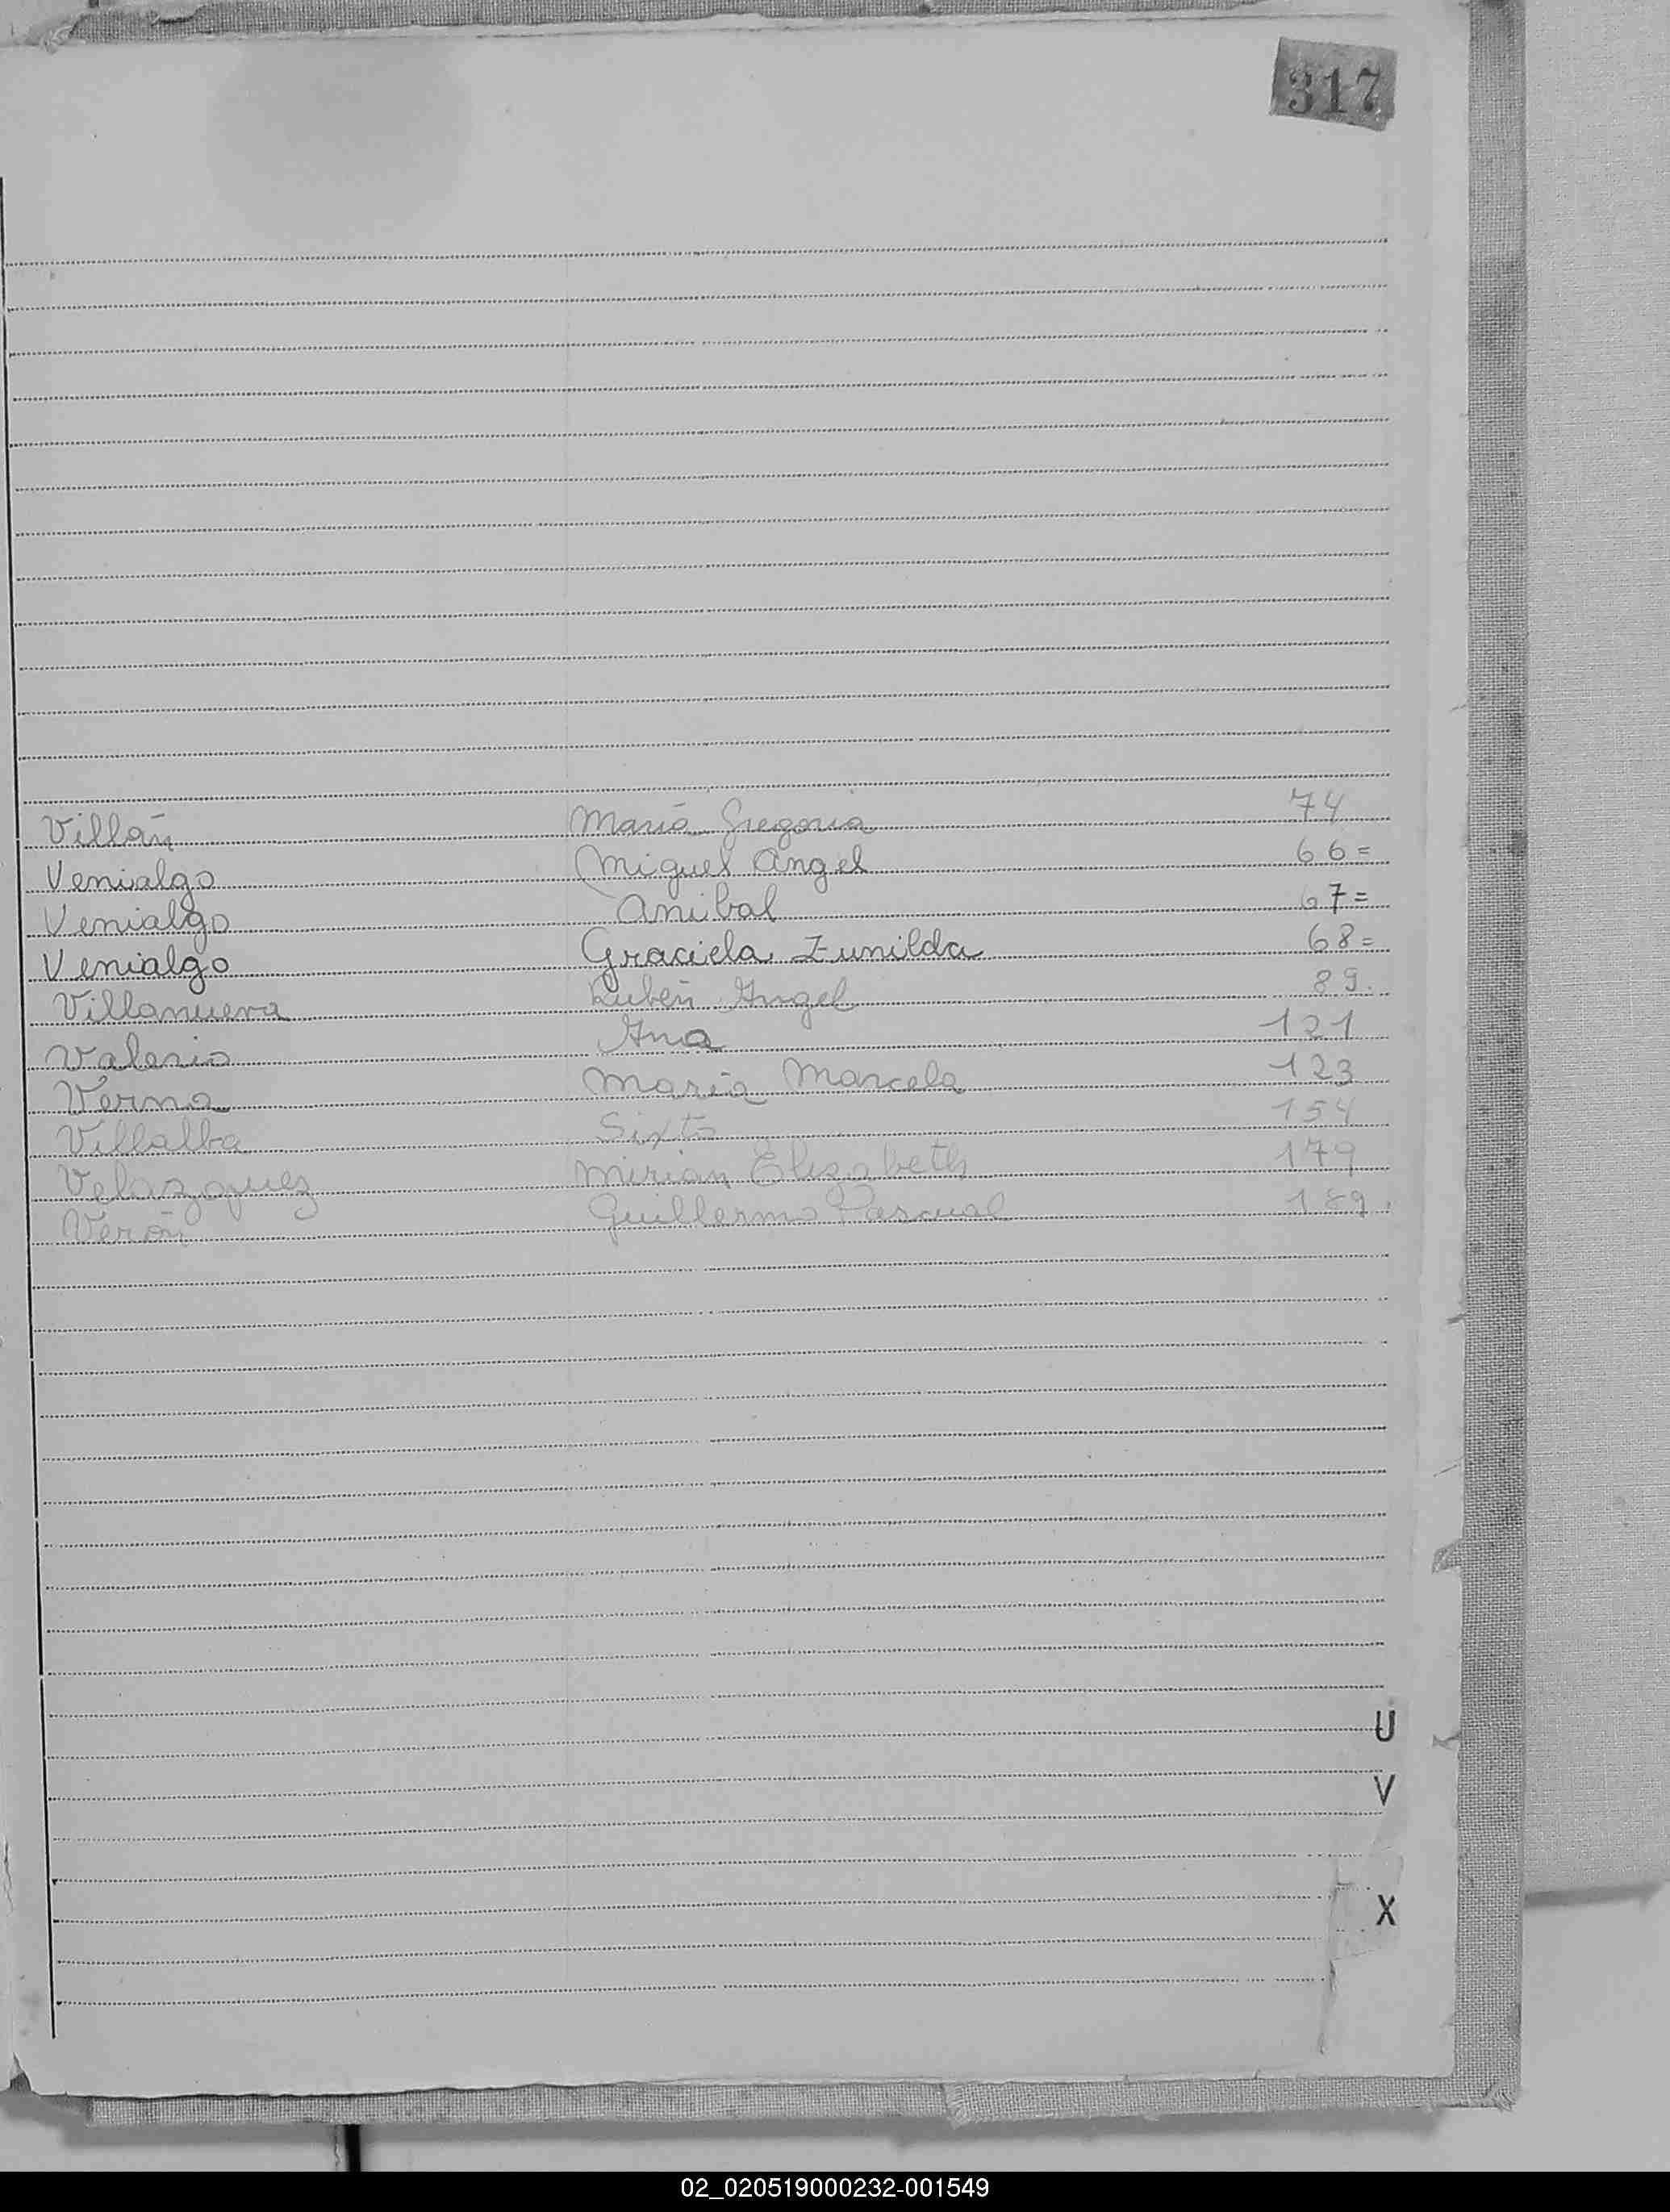 317
Villán María Gregoria 74
Venialgo Miguel Angel 66=
Venialgo Anibal 67=
Venialgo Graciela Zunilda 68=
Villanueva Rubén Angel 89.
Valerio Ana 121
Verma María Marcela 123
Villalba Sixto 154
Velazquez Mirian Elizabeth 179
Verón Guillermo Pascual 189.
U
V
X
02_020519000232-001549